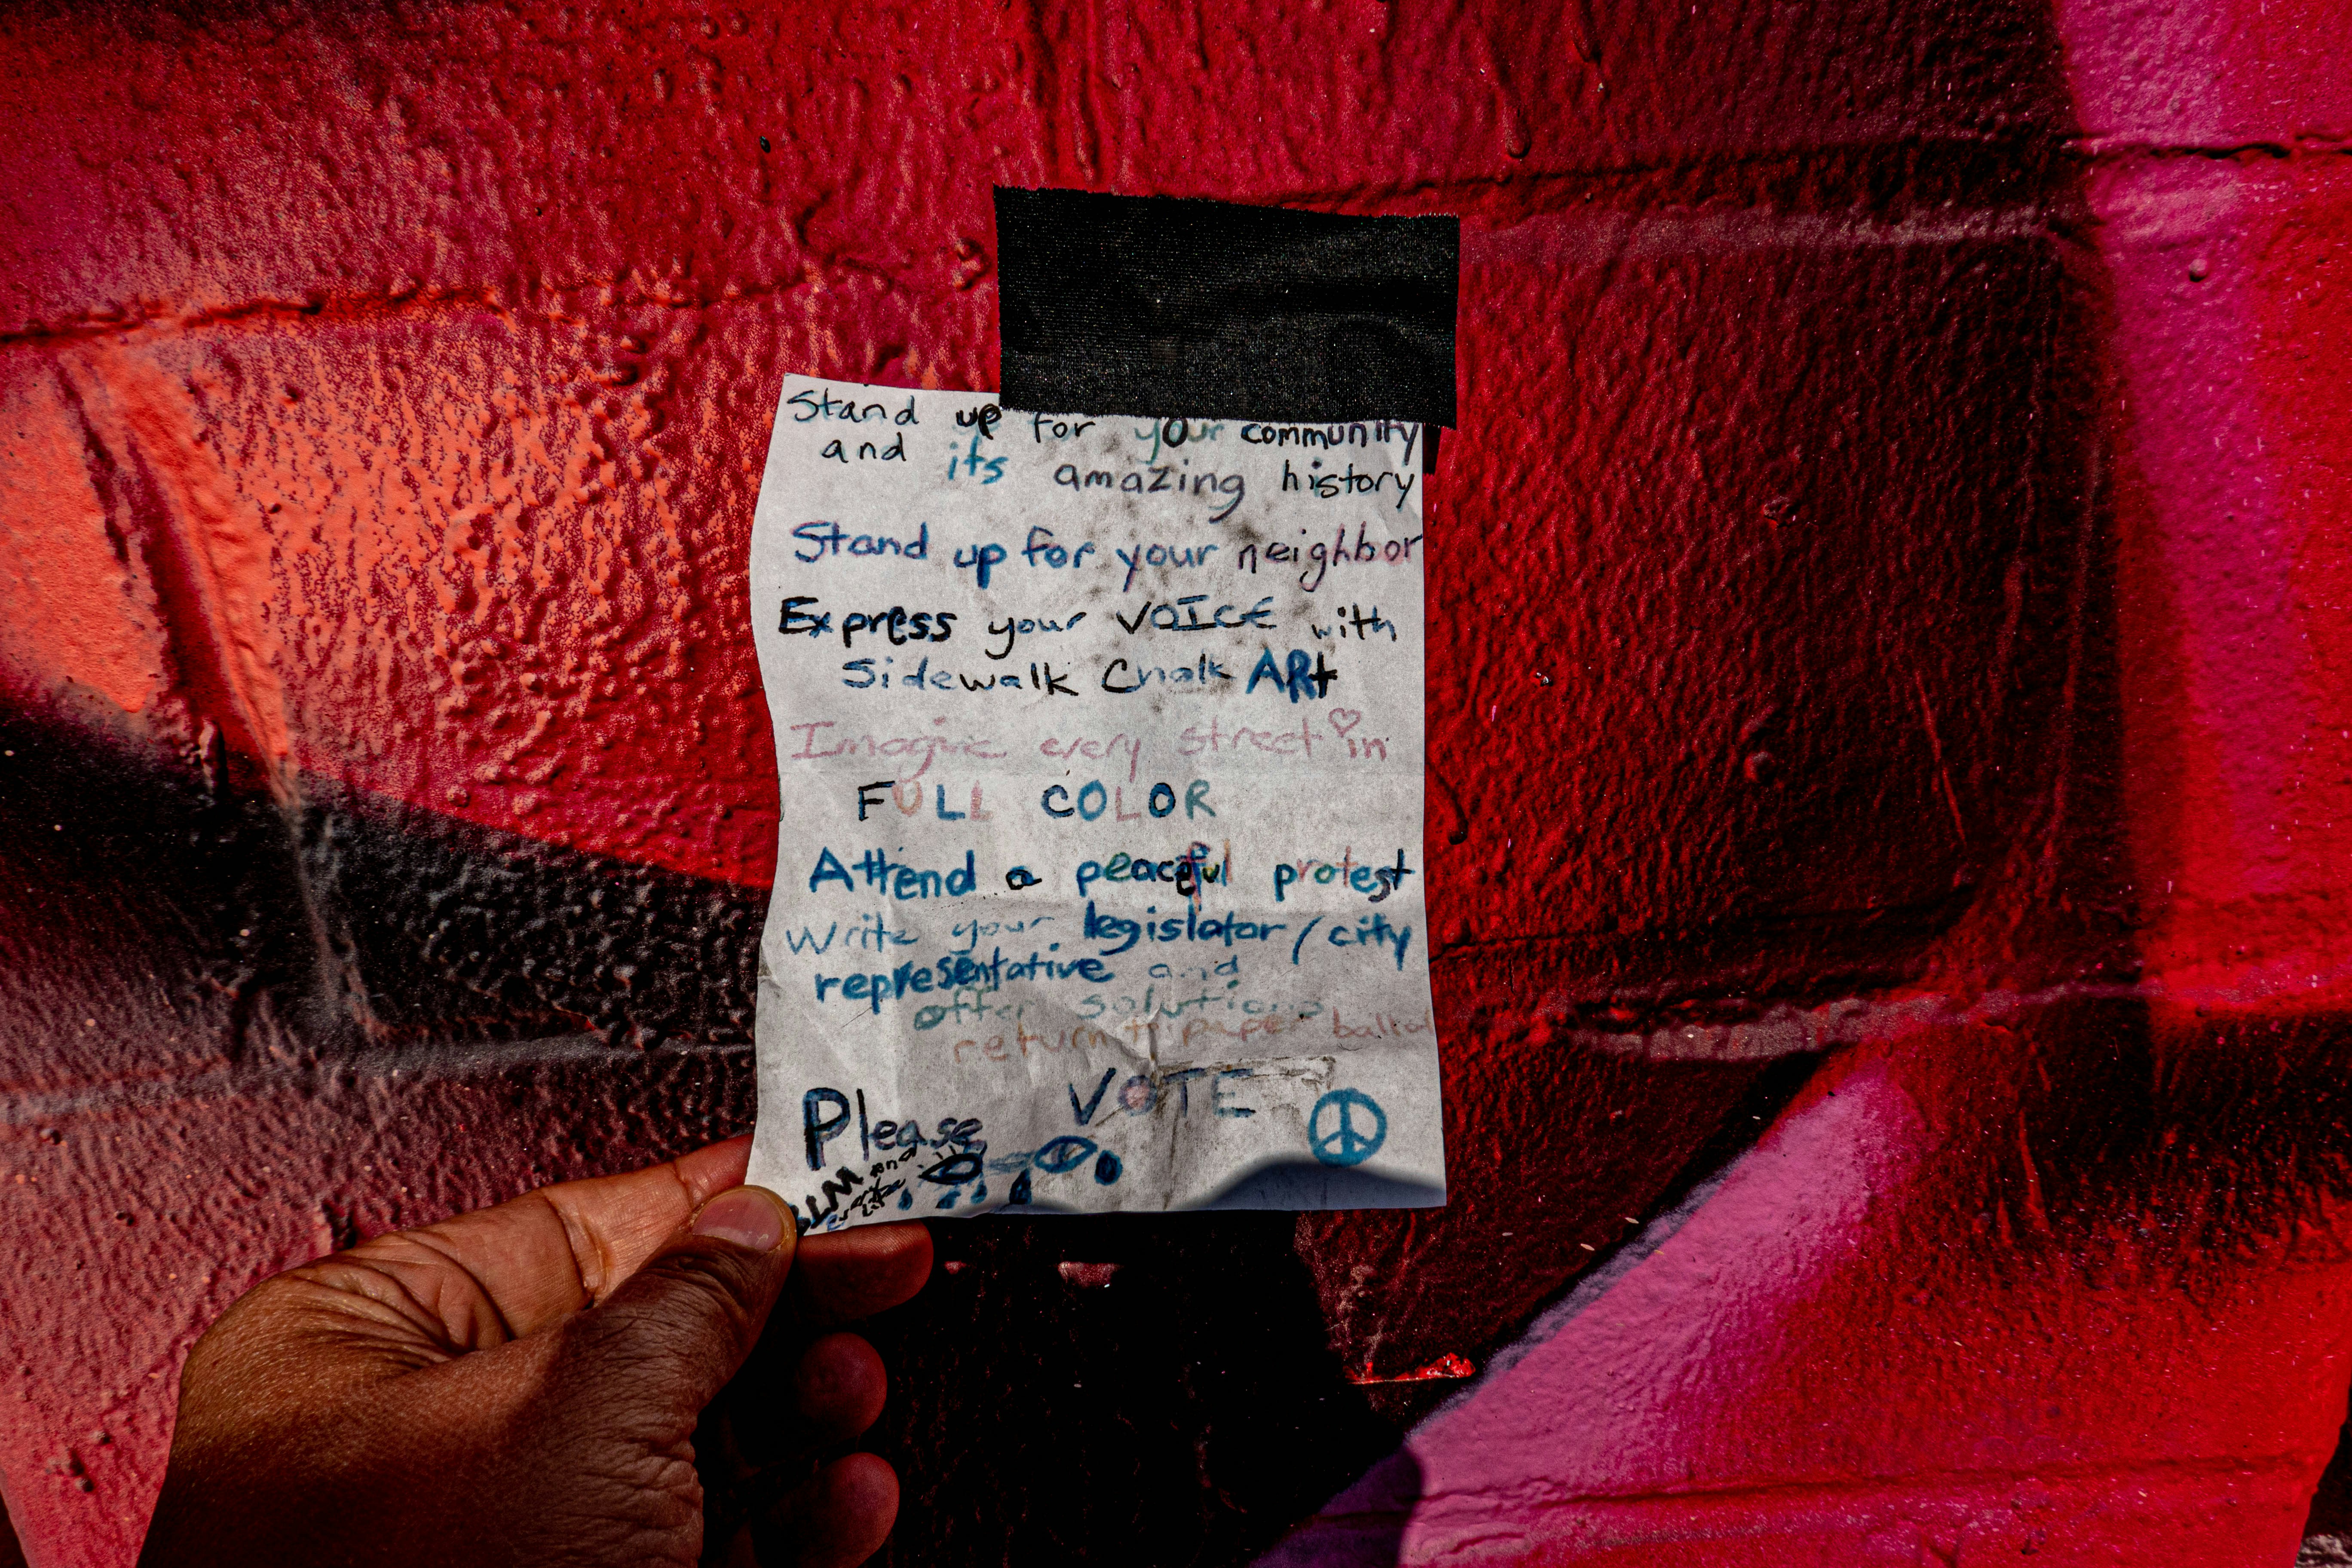 Stand up for your community
and its amazing history
Stand up for your neighbor
Express your VOICE with
Sidewalk Chalk ARt
Imagine every street in
FULL COLOR
Attend a peaceful protest
Write your legislator/city
representative and
offer solutions
return paper ballot
Please VOTE
BLM and